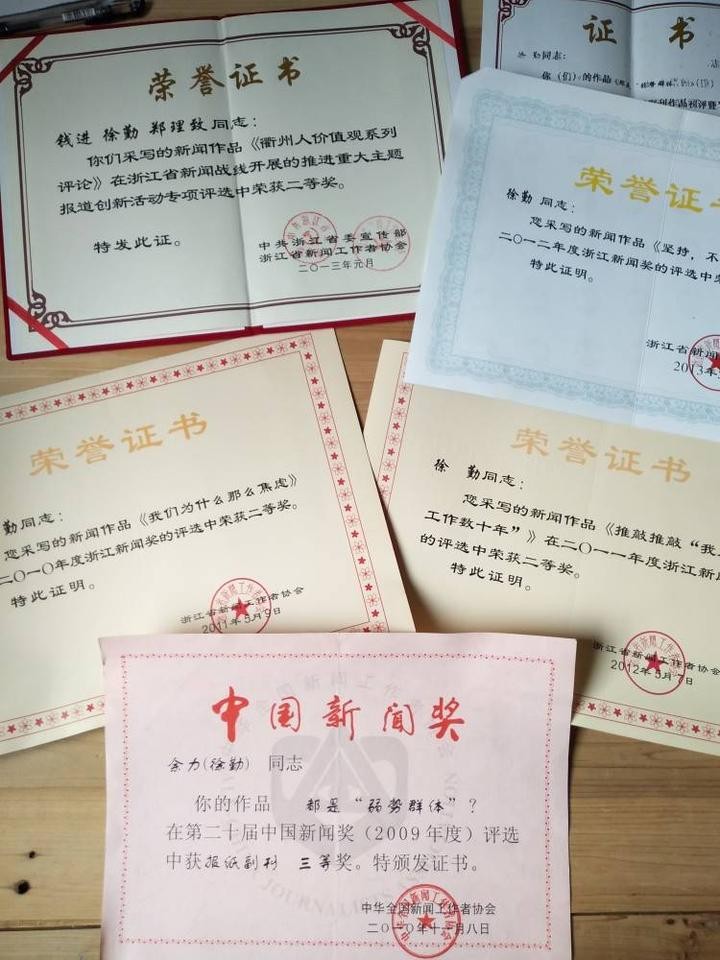 荣誉证书
钱进 徐勤 郑理致同志：
你们采写的新闻作品《衢州人价值观系列
评论》在浙江省新闻战线开展的推进重大主题
报道创新活动专项评选中荣获二等奖。
特发此证。
中共浙江省委宣传部
浙江省新闻工作者协会
二〇一三年元月
证书
勤同志：
你（们）的作品
荣誉证书
徐勤 同志：
您采写的新闻作品《坚持，不
二〇一二年度浙江新闻奖的评选中荣
特此证明。
浙江省新闻
2013年
荣誉证书
勤同志：
您采写的新闻作品《我们为什么那么焦虑》
二〇一〇年度浙江新闻奖的评选中荣获二等奖。
特此证明。
浙江省新闻工作者协会
2011年5月9日
荣誉证书
徐 勤 同志：
您采写的新闻作品《推敲推敲“我
工作数十年”》在二〇一一年度浙江新闻
的评选中荣获二等奖。
特此证明。
浙江省新闻工作者协会
2012年5月7日
中国新闻奖
余力（徐勤） 同志
你的作品 都是“弱势群体”？
在第二十届中国新闻奖（2009年度）评选
中获报纸副刊 三等奖。特颁发证书。
中华全国新闻工作者协会
二〇一〇年十一月八日